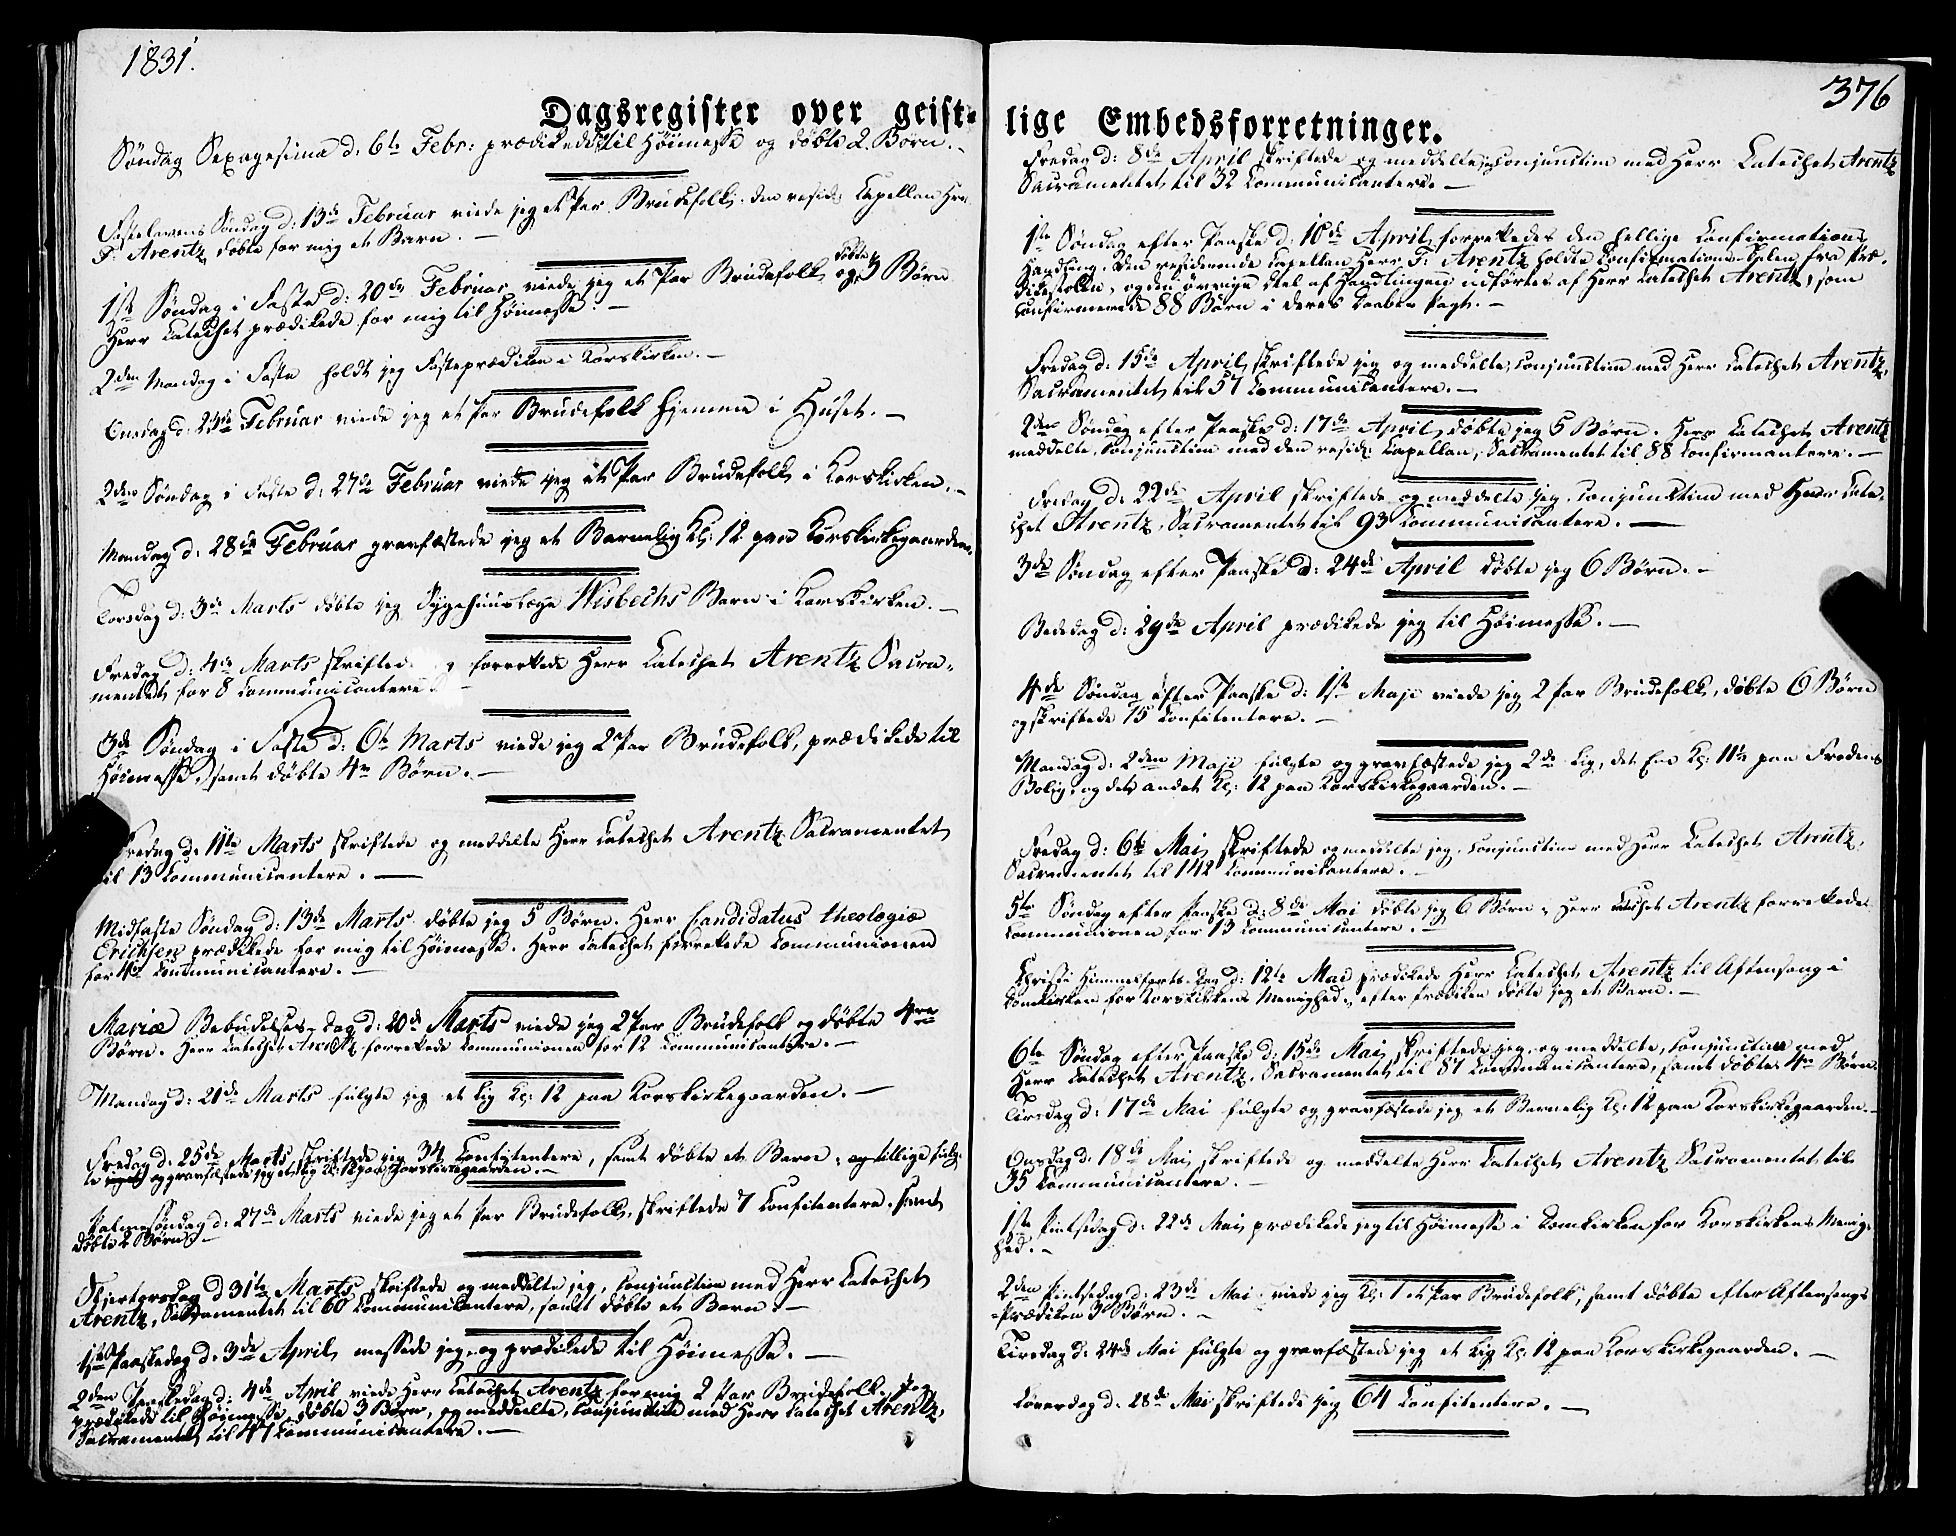 1831.
Dagsregister over geist-
Søndag Sexagesima d: 6te Febr: prædikede til Høimesse og døbte 2 Børn. -
Fastelavens Søndag d: 13de Februar viede jeg et Par Brudefolk. den resid: Capellan Herr
F: Arentz døbte for mig et Barn. -
1ste Søndag i Faste d: 20de Februar viede jeg et Par Brudefolk og døbte 3 Børn
Herr Catechet prædikede for mig til Høimesse. -
2den Mandag i Faste holdt jeg Fasteprædiken i Korskirken. -
Onsdag d: 23de Februar viede jeg et Par Brudefolk hjemme i Huset. -
2den Søndag i Faste d: 27de Februar viede jeg et Par Brudefolk i Korskirken. -
Mandag d: 28de Februar gravfæstede jeg et Barnelig Kl: 12 paa Korskirkegaarden.
Torsdag d: 3de Marts døbte jeg Sygehuuslæge Wisbechs Barn i Korskirken. -
Fredag d: 4de Marts skriftede og forrettede Herr Catechet Arentz Sacra-
mentet for 8 Communicantere -
3de Søndag i Faste d: 6te Marts viede jeg 2 Par Brudefolk, prædikede til
Høimesse, samt døbte 4re Børn. -
Fredag d: 11te Marts skriftede og meddelte Herr Catechet Arentz Sacramentet
til 13 Communicantere. -
Midfaste Søndag d: 13de Marts døbte jeg 5 Børn. Herr Candidatus theologiæ
Erichsen prædikede for mig til Høimesse. Herr Catechet forrettede Communionen
for 4re Communicantere. -
Mariæ Bebudelses-dag d: 20de Marts viede jeg 2 Par Brudefolk og døbte 4re
Børn. Herr Catechet Arentz forrettede Communionen for 12 Communicantere. -
Mandag d: 21de Marts fulgte jeg et Lig Kl: 12 paa Korskirkegaarden. -
Fredag d: 25de Marts skriftede jeg 34 Confitentere, samt døbte et Barn, og tillige fulg-
te og gravfæstede jeg et Lig Kl: 12 paa Korskirkegaarden. -
Palmesøndag d: 27de Marts viede jeg et Par Brudefolk, skriftede 7 Confitentere, samt
døbte 2 Børn. -
Skjertorsdag d 31te Marts skriftede og meddelte jeg, conjunctim med Herr Catechet
Arentz, Sacramentet til 60 Communicantere, samt døbte et Barn. -
1ste Paaskedag d: 3de April messede jeg og prædikede til Høimesse. -
2den Paaskedag d: 4de April viede Herr Catechet Arentz for mig 2 Par Brudefolk. Jeg
prædikede til Høimesse, døbte 3 Børn, og meddeelte, conjunctim med Herr Catechet Arentz,
Sacramentet til 47 Communicantere. -
376
lige Embedsforretninger.
Fredag d: 8de April skriftede og meddelte, conjunctim med Herr Catechet Arentz
Sacramentet til 32 Communicantere. -
1ste Søndag efter Paaske d: 10de April forrettedes den hellige Confirmations
Handling. Den residerende Capellan Herr F: Arentz holdt Confirmations-Talen fra Præ-
dikestolen, og den øvrige Deel af Handlingen udførtes af Herr Catechet Arentz, som
confirmerede 88 Børn i deres Daabes Pagt. -
Fredag d: 15de April skriftede jeg og meddelte, conjunctim med Herr Catechet Arentz,
Sacramentet til 57 Communicantere. -
2den Søndag efter Paaske d: 17de April døbte jeg 5 Børn. Herr Catechet Arentz
meddelte, conjunctim med den resid: Capellan, Sacramentet til 88 Confirmantere. -
Fredag d: 22de April skriftede og meddelte jeg, conjunctim med Herr Cate-
chet Arentz, Sacramentet til 93 Communicantere. -
3de Søndag efter Paaske d: 24de April døbte jeg 6 Børn. -
Bededag d: 29de April prædikede jeg til Høimesse. -
4de Søndag efter Paaske d: 1ste Maji viede jeg 2 Par Brudefolk, døbte 6 Børn
og skriftede 15 Confitentere. -
Mandag d: 2den Maji fulgte og gravfæstede jeg 2de Lig, det Ene Kl: 11½ paa Fredens
Bolig, og det andet Kl: 12 paa Korskirkegaarden. -
Fredag d: 6te Mai skriftede og meddelte jeg, conjunctim med Herr Catechet Arentz,
Sacramentet til 142 Communicantere. -
5te Søndag efter Paaske d: 8de Mai døbte jeg 6 Børn. Herr Catechet Arentz forrettede
Communionen for 13 Communicantere. -
Christi Himmelfarts-dag d: 12te Mai prædikede Herr Catechet Arentz til Aftensang i
Domkirken for Korskirkens Menighed, efter Prædiken døbte jeg et Barn. -
6te Søndag efter Paaske d: 15de Mai skriftede jeg og meddelte, conjunctim med
Herr Catechet Arentz, Sacramentet til 87 Communicantere, samt døbte 4re Børn.
Tirsdag d: 17de Mai fulgte og gravfæstede jeg et Barnelig Kl: 12 paa Korskirkegaarden. -
Onsdag d: 18de Mai skriftede og meddelte Herr Catechet Arentz Sacramentet til
35 Communicantere. -
1ste Pintsedag d: 22de Mai prædikede jeg til Høimesse i Domkirken for Korskirkens Menig-
hed. -
2den Pintsedag d: 23de Mai viede jeg Kl: 1 et Par Brudefolk, samt døbte efter Aftensangs
-Prædiken 3 Børn. -
Tirsdag d: 24de Mai fulgte og gravfæstede jeg et Lig Kl: 12 paa Korskirkegaarden. -
Løverdag d: 28de Mai skriftede jeg 64 Confitentere. -